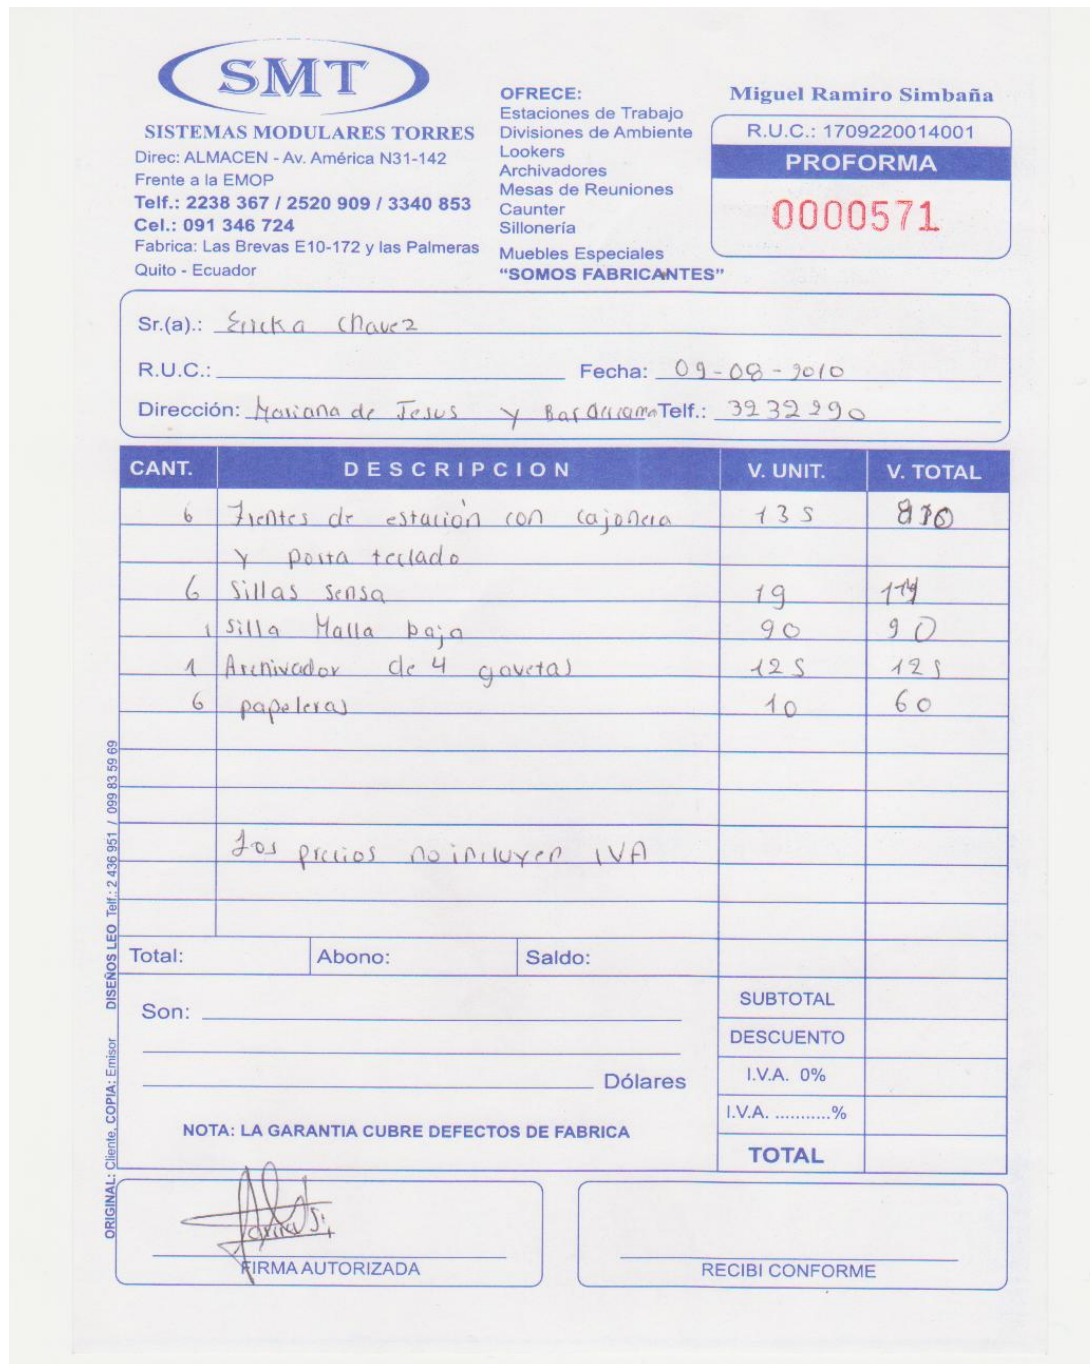 SMT
SISTEMAS MODULARES TORRES
Direc: ALMACEN - Av. América N31-142
Frente a la EMOP
Telf.: 2238 367 / 2520 909 / 3340 853
Cel.: 091 346 724
Fabrica: Las Brevas E10-172 y las Palmeras
Quito - Ecuador
OFRECE:
Estaciones de Trabajo
Divisiones de Ambiente
Lookers
Archivadores
Mesas de Reuniones
Caunter
Sillonería
Muebles Especiales
“SOMOS FABRICANTES”
Miguel Ramiro Simbaña
R.U.C.: 1709220014001
PROFORMA
0000571
Sr.(a).: Ericka Chavez
R.U.C.: Fecha: 09-08-2010
Dirección: Mariana de Jesus y Telf.: 3232290
CANT. DESCRIPCION V. UNIT. V. TOTAL
6 Frentes de estación con cajonera 135
y porta teclado
6 Sillas sensa 19
1 Silla Malla baja 90 90
1 Archivador de 4 gavetas 125 125
6 papeleras 10 60
Los precios no incluyen IVA
Total: Abono: Saldo:
Son:
Dólares
NOTA: LA GARANTIA CUBRE DEFECTOS DE FABRICA
SUBTOTAL
DESCUENTO
I.V.A. 0%
I.V.A. ...........%
TOTAL
FIRMA AUTORIZADA
RECIBI CONFORME
ORIGINAL: Cliente, COPIA: Emisor DISEÑOS LEO Telf.: 2 436 951 / 099 83 59 69